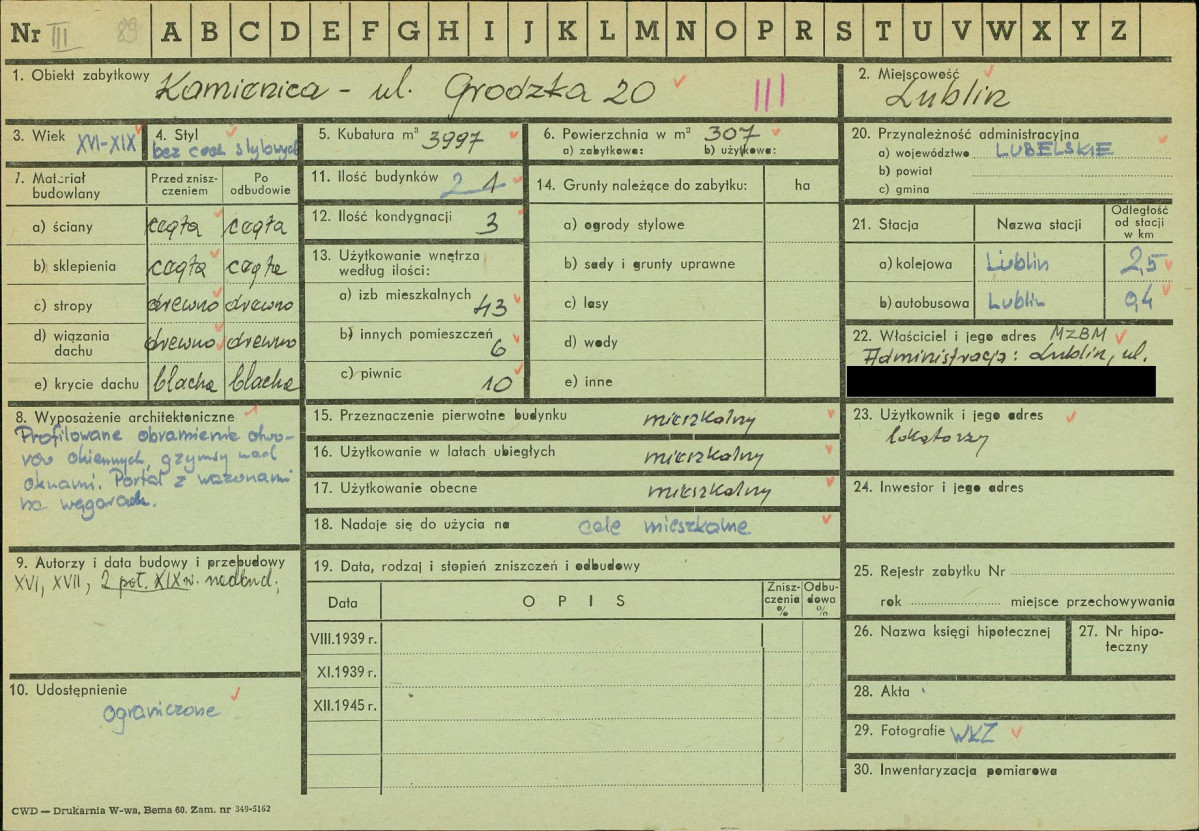 Nr III 89 A B C D E F G H I J K L M N O P R S T U V W X Y Z
1. Obiekt zabytkowy Kamienica - ul. Grodzka 20 III
2. Miejscowość Lublin
3. Wiek XVI-XIX
4. Styl bez cech stylowych
5. Kubatura m³ 3997
6. Powierzchnia w m² 307
a) zabytkowa: b) użytkowa:
7. Materiał budowlany
Przed znisz-
czeniem
Po
odbudowie
a) ściany cegła cegła
b) sklepienia cegła cegła
c) stropy drewno drewno
d) wiązania
dachu drewno drewno
e) krycie dachu blacha blacha
8. Wyposażenie architektoniczne
Profilowane obramienie otwo-
rów okiennych, gzymsy nad
oknami. Portal z wazonami
na węgarach.
9. Autorzy i data budowy i przebudowy
XVI, XVII, 2 poł. XIX w. nadbud.
10. Udostępnienie
ograniczone
11. Ilość budynków 2 1
12. Ilość kondygnacji 3
13. Użytkowanie wnętrza
według ilości:
a) izb mieszkalnych 43
b) innych pomieszczeń 6
c) piwnic 10
14. Grunty należące do zabytku: ha
a) ogrody stylowe
b) sady i grunty uprawne
c) lasy
d) wody
e) inne
15. Przeznaczenie pierwotne budynku mieszkalny
16. Użytkowanie w latach ubiegłych mieszkalny
17. Użytkowanie obecne mieszkalny
18. Nadaje się do użycia na cele mieszkalne
19. Data, rodzaj i stopień zniszczeń i odbudowy
Data OPIS
Znisz-
czenia
%
Odbu-
dowa
%
VIII.1939 r.
XI.1939 r.
XII.1945 r.
20. Przynależność administracyjna
a) województwo LUBELSKIE
b) powiat
c) gmina
21. Stacja Nazwa stacji
Odległość
od stacji
w km
a) kolejowa Lublin 2,5
b) autobusowa Lublin 0,4
22. Właściciel i jego adres MZBM
Administracja: Lublin, ul.
23. Użytkownik i jego adres
lokatorzy
24. Inwestor i jego adres
25. Rejestr zabytku Nr
rok miejsce przechowywania
26. Nazwa księgi hipotecznej
27. Nr hipo-
teczny
28. Akta
29. Fotografie WKZ
30. Inwentaryzacja pomiarowa
CWD — Drukarnia W-wa, Bema 60. Zam. nr 349-5162